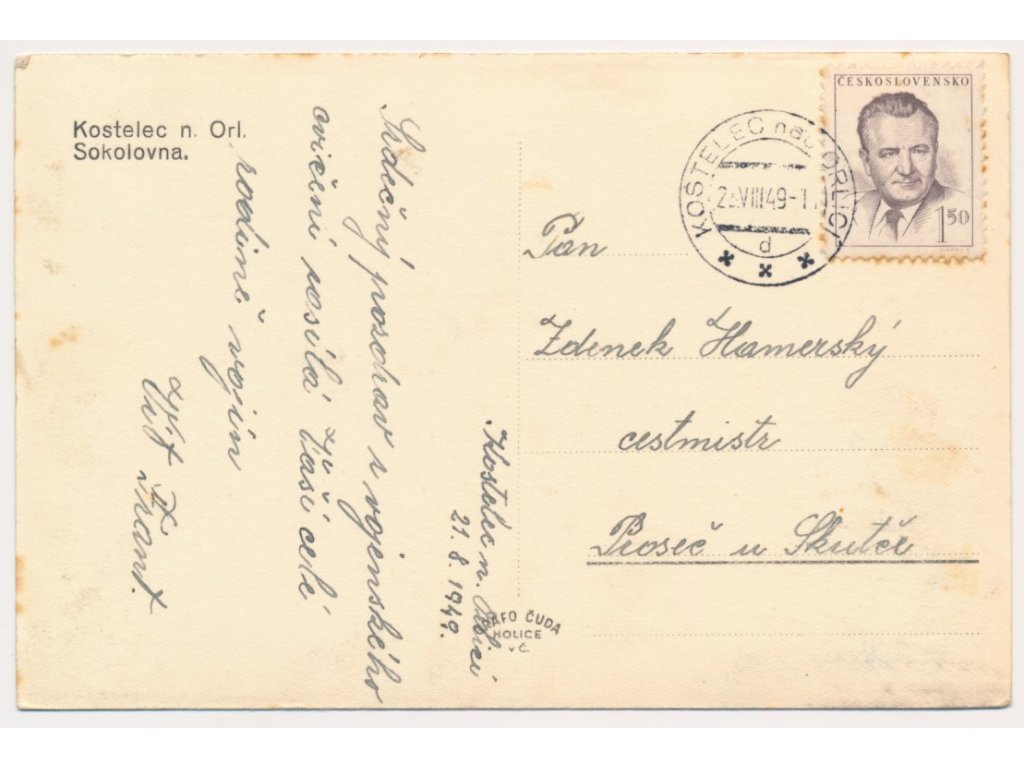 Kostelec n. Orl.
Sokolovna.
Srdečný pozdrav z vojenského
cvičení posílá Vaší celé
rodině vojín
Vít Frant.
Kostelec n. Orlicí
21. 8. 1949.
RAFO ČUDA
HOLICE
v Č.
KOSTELEC nad ORLICÍ
VIII 49-1
d
ČESKOSLOVENSKO
1.50
Pan
Zdenek Hamerský
cestmistr
Proseč u Skutče